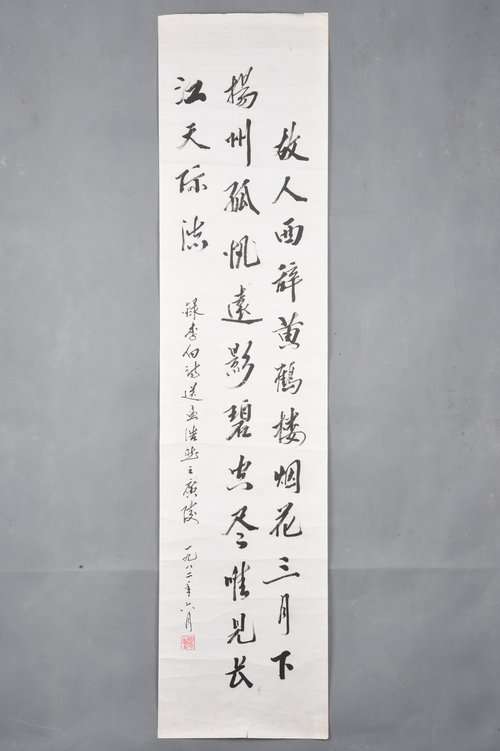 故人西辞黄鹤楼烟花三月下
揚州孤帆遠影碧空尽唯見长
江天际流
録李白诗送孟浩然之廣陵
一九八二年六月